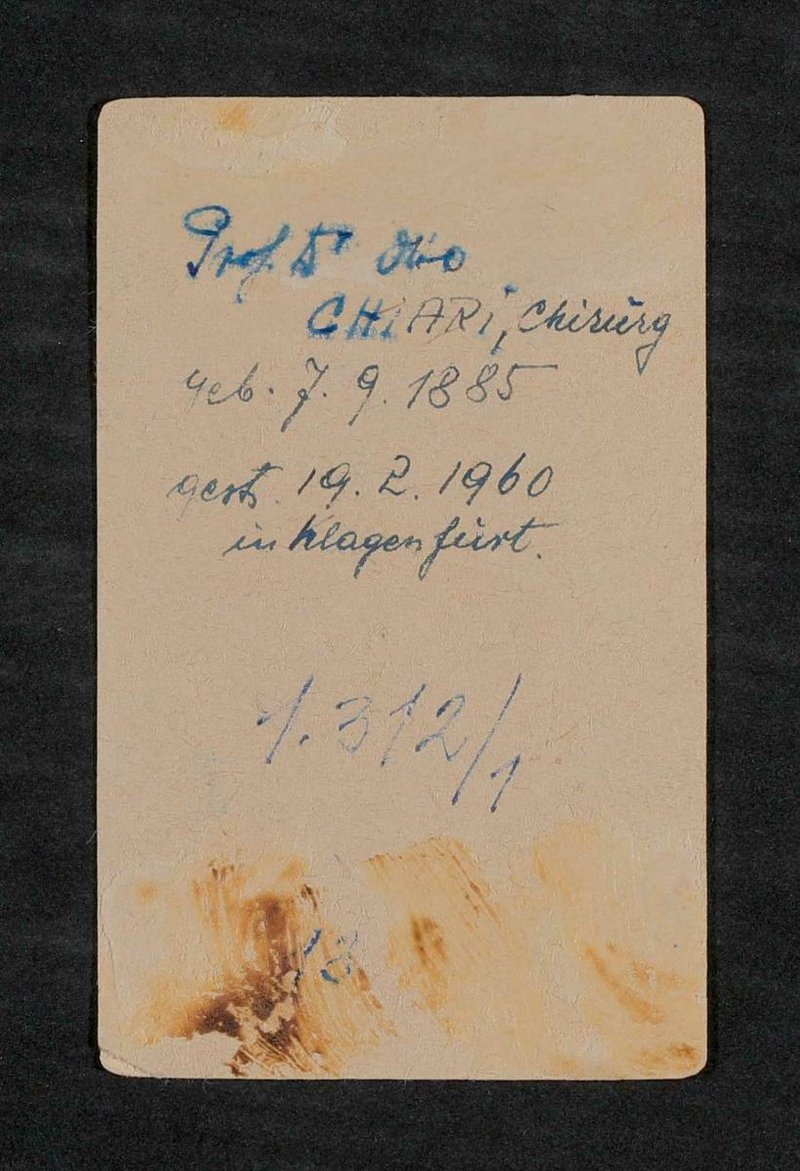 Prof. Dr Otto
CHiARi, Chirurg
geb. 7. 9. 1885
gest. 19. 2. 1960
in Klagenfurt.
1.312/1
13